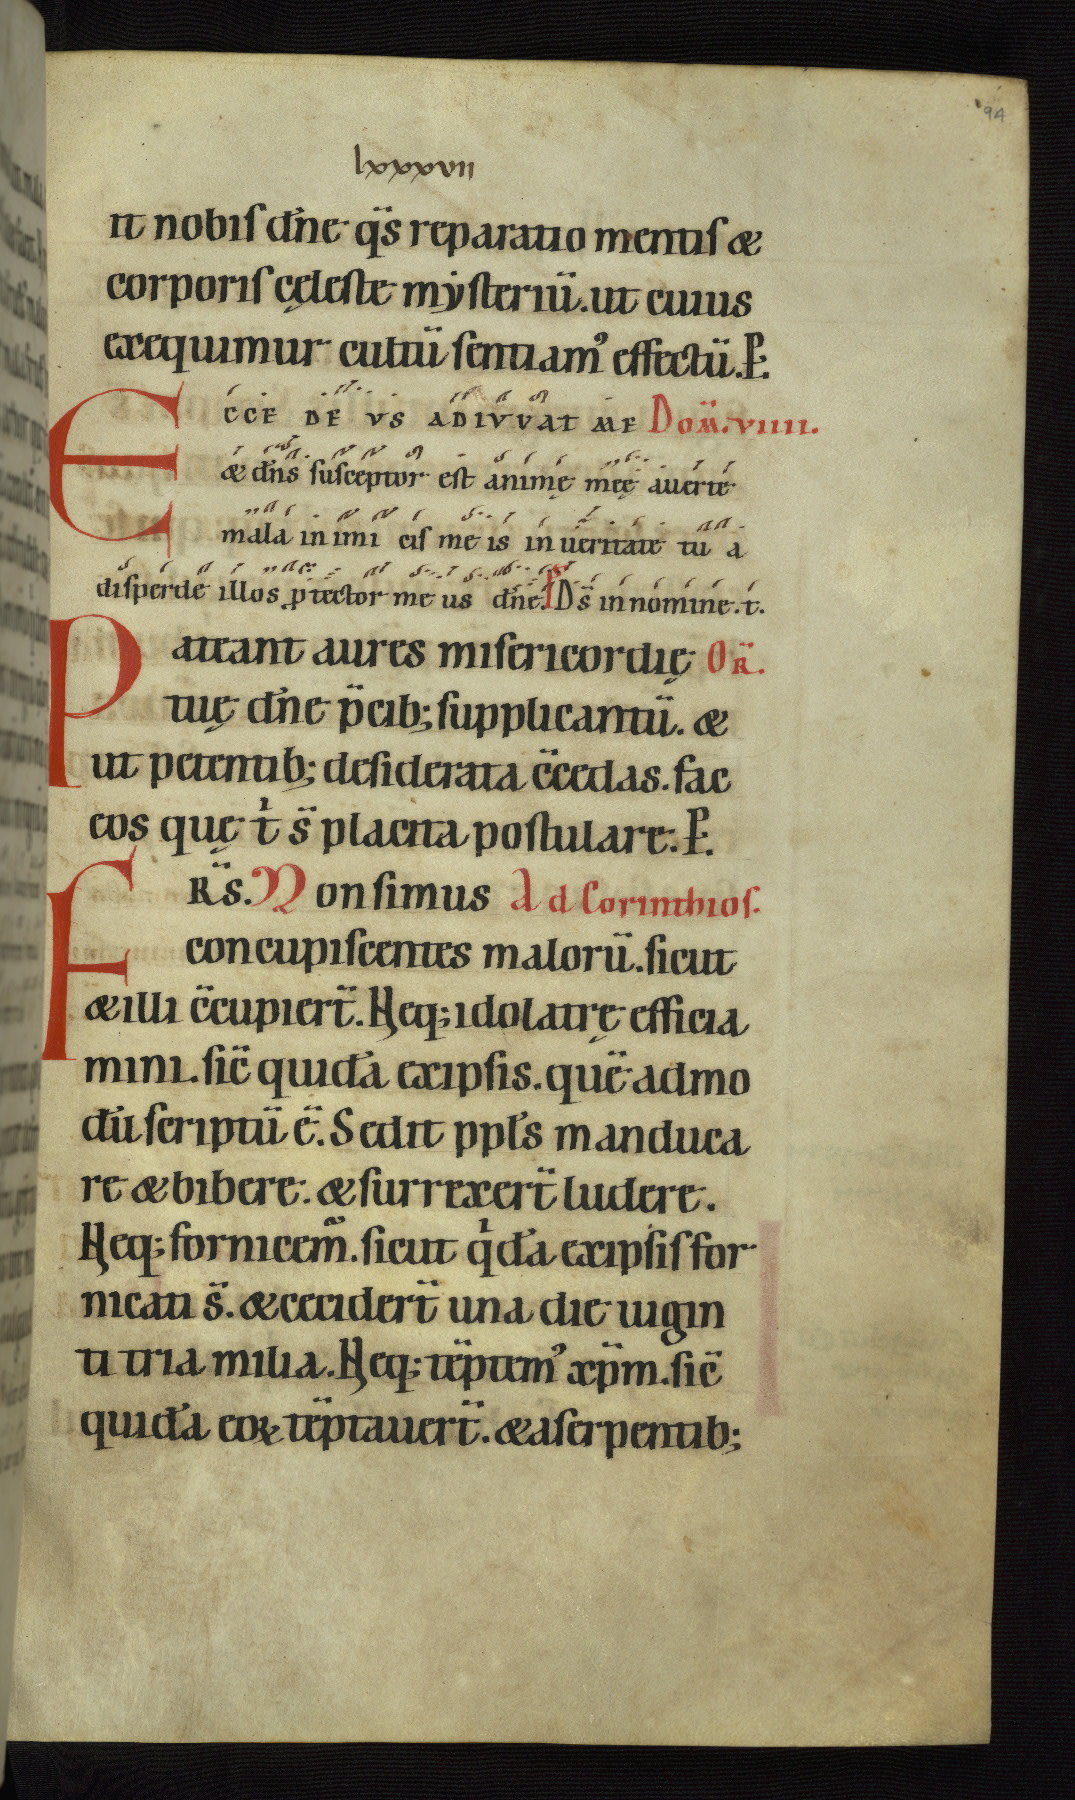 94
lxxxvii
it nobis dñe q̃s reparatio mentis &
corporis cęleste mẏsteriũ. ut cuius
exequimur cultũ sentiam' effectũ. P.
ECCE DE VS ADIVVAT ME Dom̃. viiii.
& dñs susceptor est animę meę averte
mala inimi cis me is in veritate tu a
disperde illos protector me us dñe. P̃s D̃s in nomine. t.
Pateant aures misericordię OR̃.
tuę dñe p̃cib; supplicantũ. &
ut petentib; desiderata c̃cedas. fac
eos quę t' s̃ placita postulare. P.
FR̃S. Non simus Ad Corinthios.
concupiscentes malorũ. sicut
& illi c̃cupier̃t. Neq; idolatrę efficia
mini. sic̃ quidã ex ipsis. quẽ admo
dũ scriptũ ẽ. Sedit ppl̃s manduca
re & bibere. & surrexer̃t ludere.
Neq; fornicem̃. sicut q'dã ex ipsis for
nicati s̃. & cecider̃t una die uigin
ti tria milia. Neq; tẽptem' xp̃m. sic̃
quidã eoꝝ tẽptauer̃t. & a serpentib;